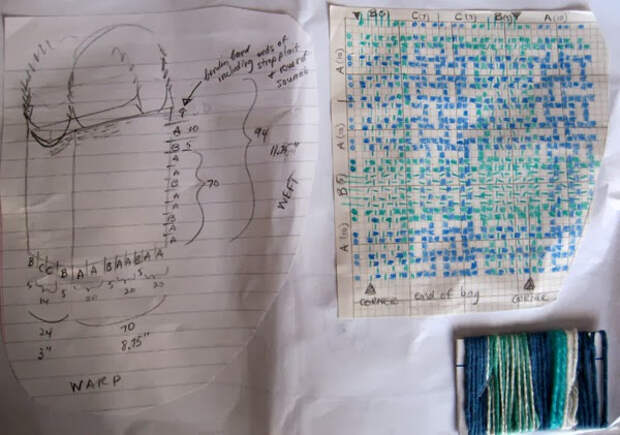 border band
including ends of
strap plait
+ row of
sounak
A 10
B 5
A
A
B
A
A
B
A
A
70
94
11.75"
WEFT
B C C B A A B A A B A A
5 14 5 20 5 20 5 20
24 70
3" 8.75"
WARP
B(5) C(7) C(7) B(5) A(10)
A(10)
A(10)
B(5)
A(10)
CORNER end of bag CORNER